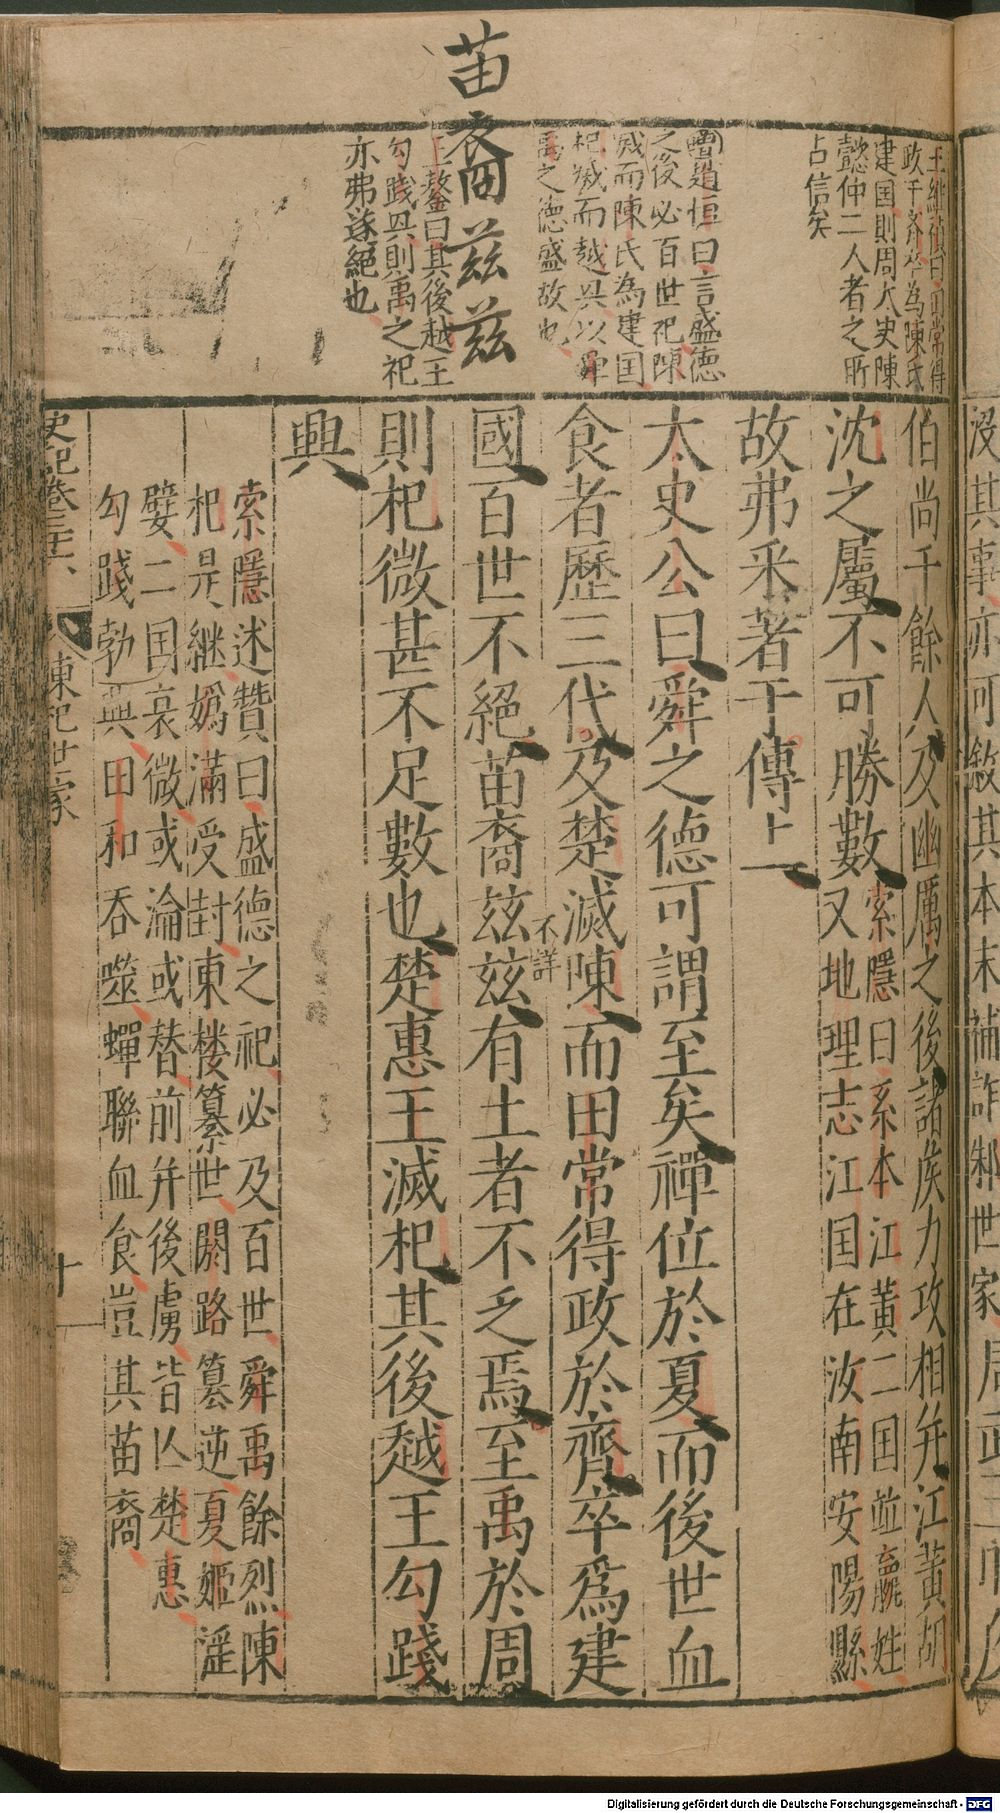 苗裔茲茲
王維禎曰田常得
政于齊卒為陳氏
建国則周大史陳
懿仲二人者之所
占信矣
曹道恒曰言盛德
之後必百世祀陳
滅而陳氏為建囯
杞滅而越興以舜
禹之德盛故也
王鏊曰其後越王
勾踐興則禹之祀
亦弗遂絕也
伯尚千餘人及幽厲之後諸侯力攻相并江黃胡
沈之屬不可勝數
索隱曰系本江黃二囯並嬴姓
又地理志江囯在汝南安陽縣
故弗采著于傳上
太史公曰舜之德可謂至矣禪位於夏而後世血
食者歷三代及楚滅陳而田常得政於齊卒爲建
國百世不絕苗裔茲茲有土者不乏焉至禹於周
不詳
則杞微甚不足數也楚惠王滅杞其後越王勾踐
興
索隱述贊曰盛德之祀必及百世舜禹餘烈陳
杞是継嬀滿受封東楼纂世閼路篡逆夏姬淫
嬖二国衰微或淪或替前并後虜皆亾楚惠
勾踐勃興田和吞噬蟬聯血食豈其苗裔
史記卷三十六
陳杞世家
十
沒其事亦可敘其本末補許邾世家周武王
Digitalisierung gefördert durch die Deutsche Forschungsgemeinschaft - DFG